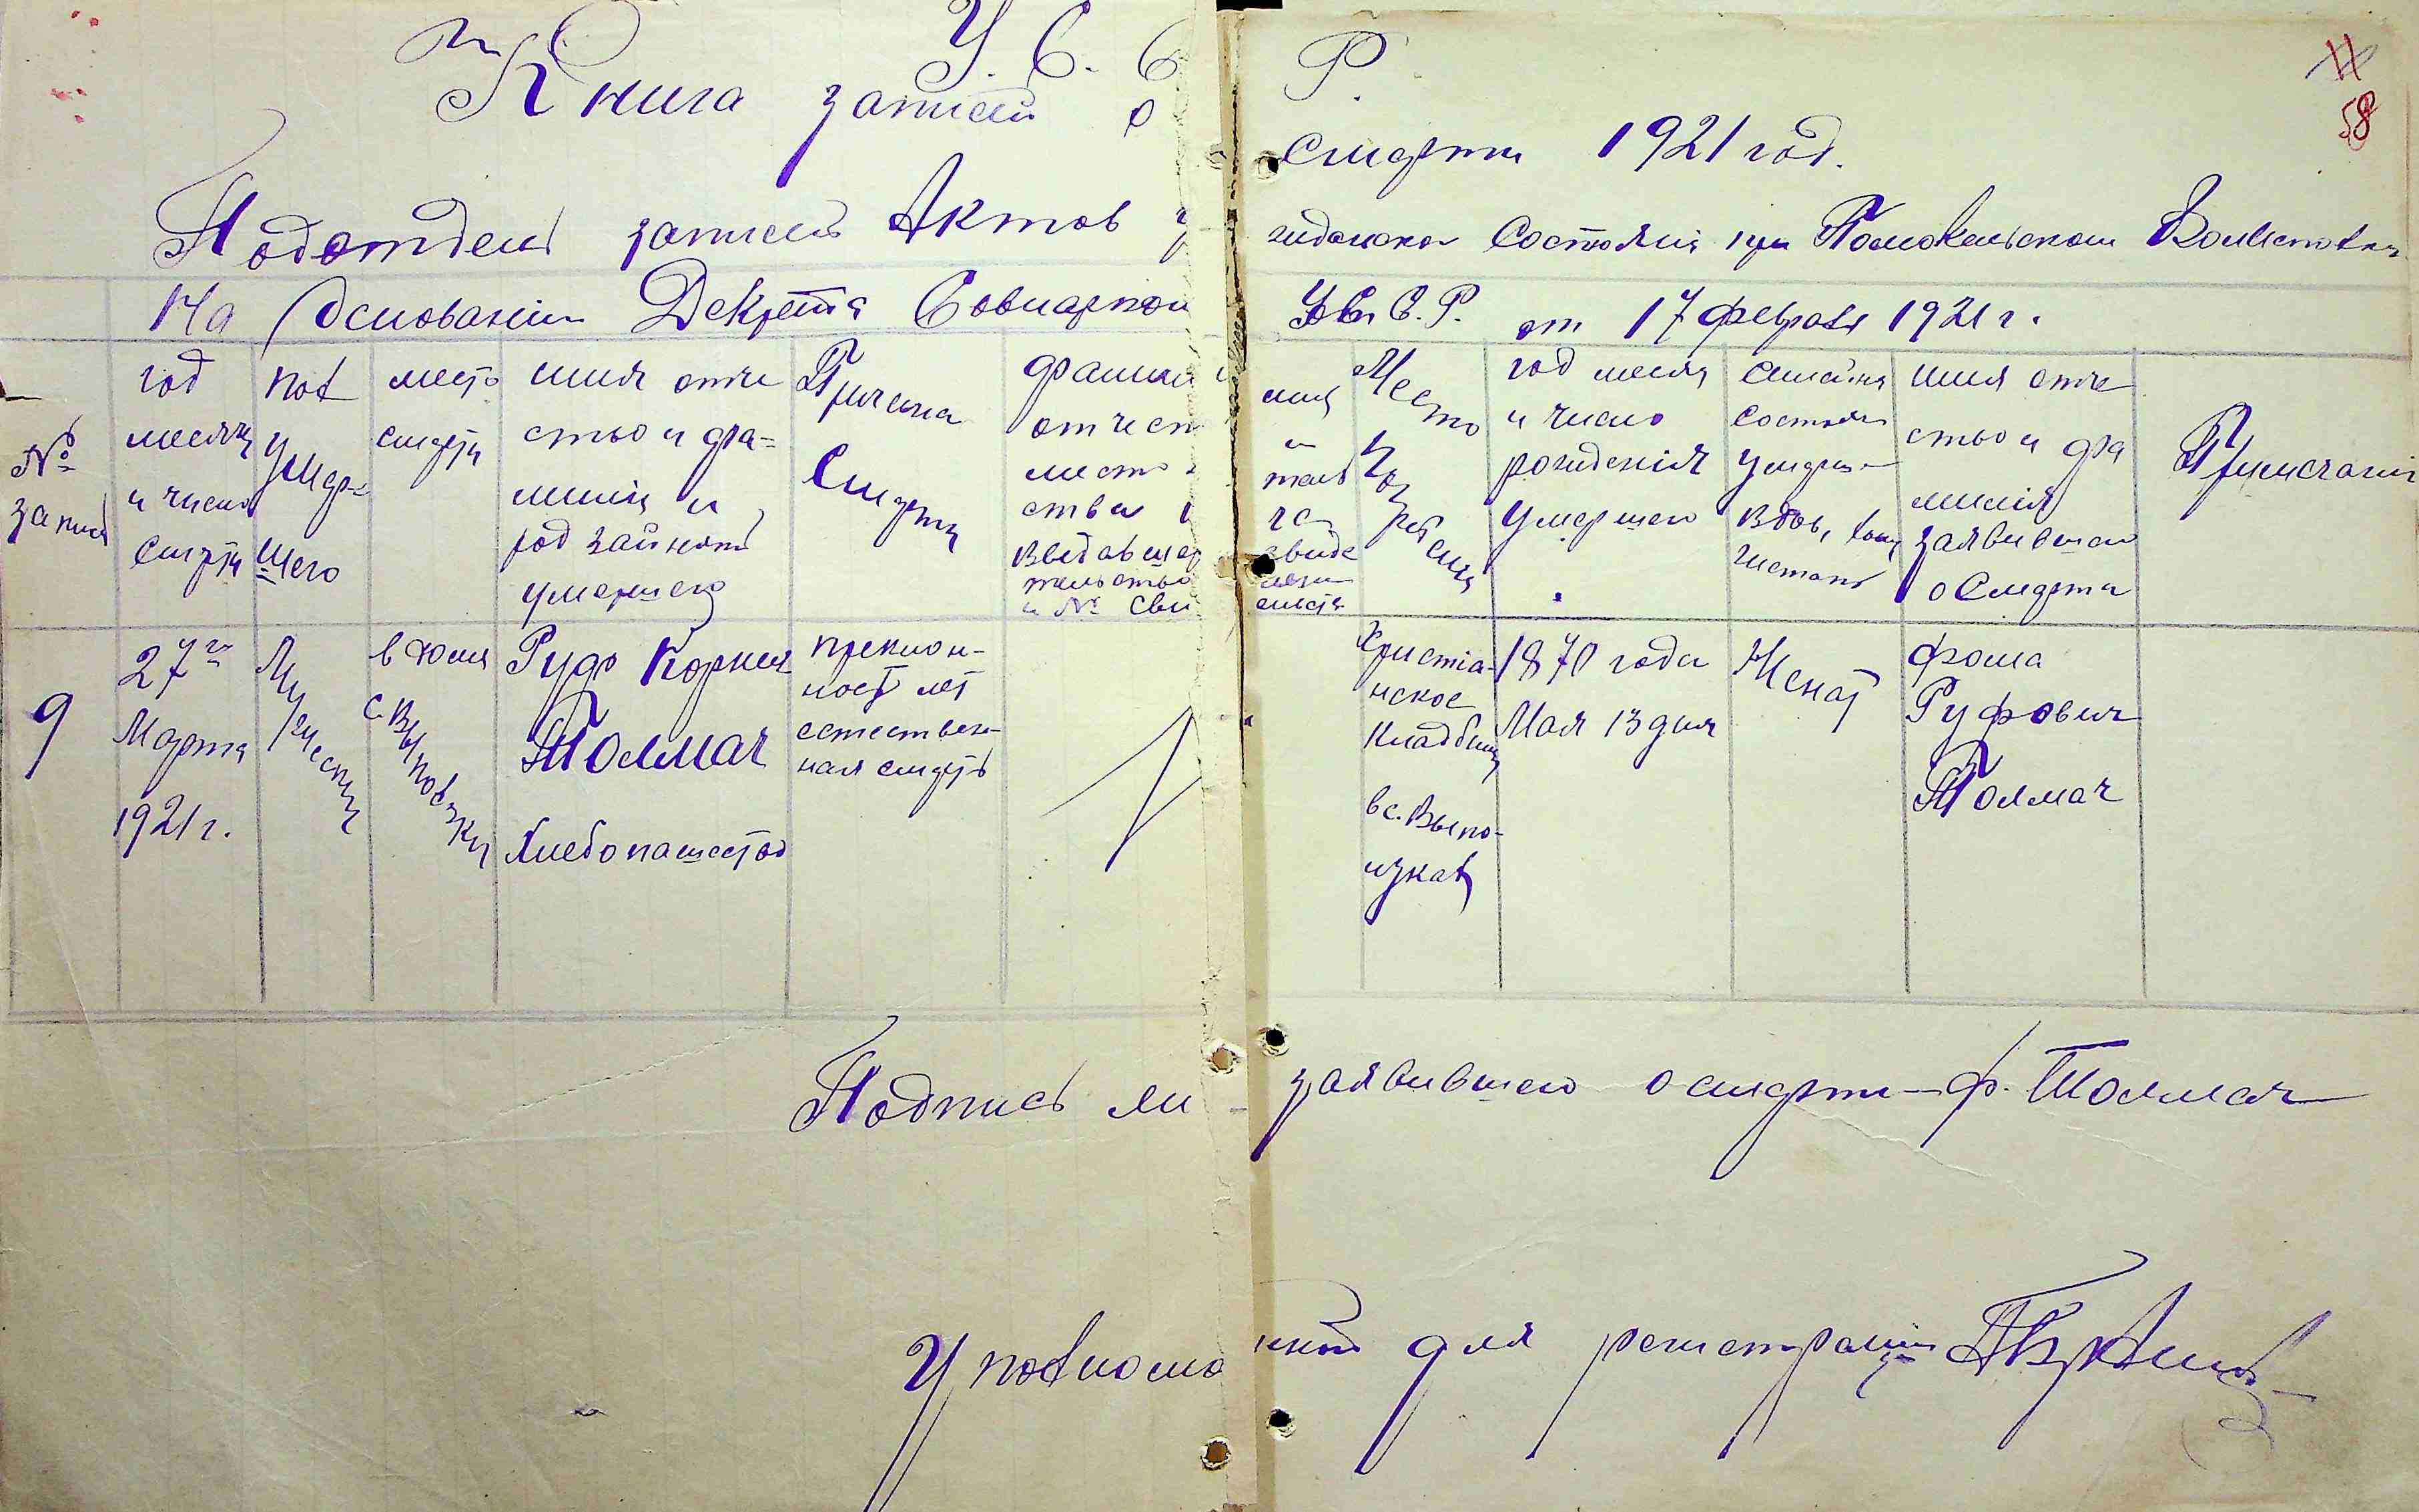 У. С. С Р.
Книга записей о смерти 1921 год.
58
Подотдел записей Актов гражданского Состояния при Помокельском Волисполком
На Основании Декрета Совнаркома У.С.С.Р. от 17 февраля 1921 г.
№ записи
год месяц и число смерти
пол умершего
место смерти
имя отчество и фамилия и род занятий умершего
Причина Смерти
фамилия
отчест
место
ства
Место погребения
год месяц и число рождения умершего
Семейн состоян умерш
имя отчество и фамилия заявившего о Смерти
Примечание
9
27го Марта 1921 г.
Мужеской
в доме с. Выповзки
Руф Корнея Толмач Хлебопашество
преклонность лет естественная смерть
Христианское кладбище в с. Выползках
1870 года Мая 13 дня
Женат
Фома Руфович Толмач
Подпись ли заявившего о смерти – Ф. Толмач
Уповномо ный для регистрации